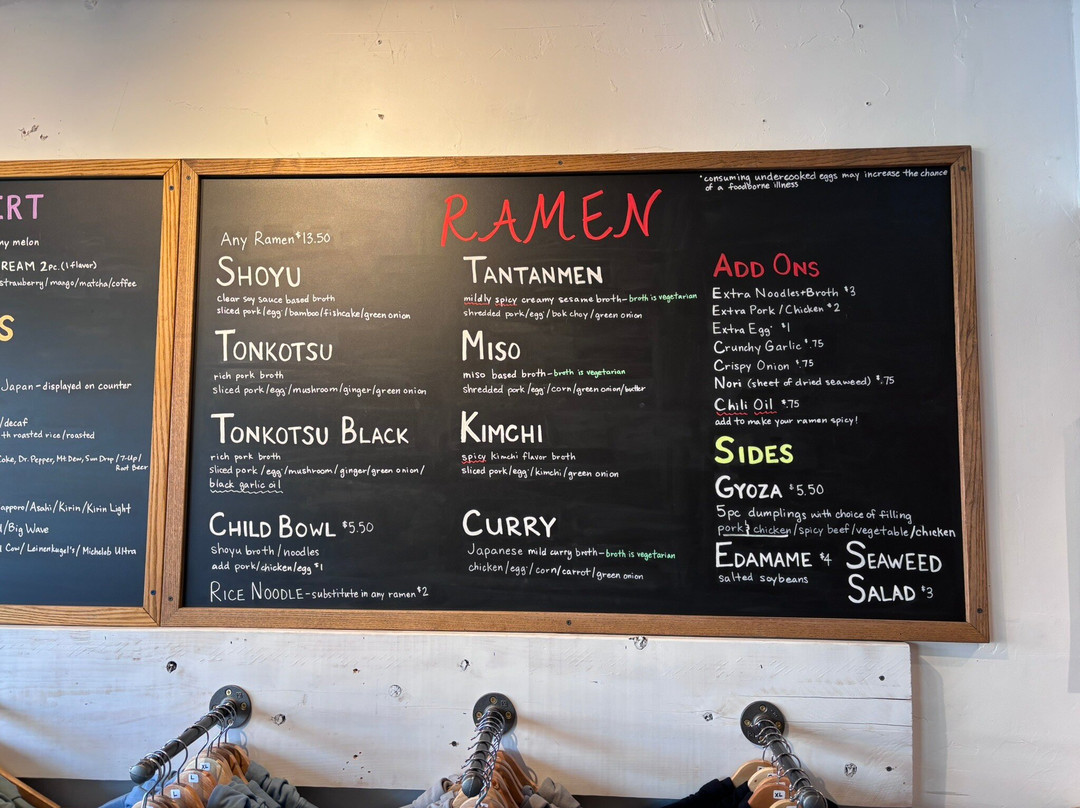 ERT
ny melon
REAM 2pc. (1 flavor)
strawberry/mango/matcha/coffee
S
Japan - displayed on counter
/decaf
th roasted rice/roasted
Coke, Dr. Pepper, Mt. Dew, Sun Drop/7-Up/
Root Beer
apporo/Asahi/Kirin/Kirin Light
/Big Wave
Cow/Leinenkugel's/Michelob Ultra
RAMEN
Any Ramen $13.50
SHOYU
clear soy sauce based broth
sliced pork/egg*/bamboo/fishcake/green onion
TONKOTSU
rich pork broth
sliced pork/egg*/mushroom/ginger/green onion
TONKOTSU BLACK
rich pork broth
sliced pork/egg*/mushroom/ginger/green onion/
black garlic oil
CHILD BOWL $5.50
shoyu broth/noodles
add pork/chicken/egg* $1
RICE NOODLE - substitute in any ramen $2
TANTANMEN
mildly spicy creamy sesame broth - broth is vegetarian
shredded pork/egg*/bok choy/green onion
MISO
miso based broth - broth is vegetarian
shredded pork/egg*/corn/green onion/butter
KIMCHI
spicy kimchi flavor broth
sliced pork/egg*/kimchi/green onion
CURRY
Japanese mild curry broth - broth is vegetarian
chicken/egg*/corn/carrot/green onion
*consuming undercooked eggs may increase the chance
of a foodborne illness
ADD ONS
Extra Noodles+Broth $3
Extra Pork/Chicken $2
Extra Egg* $1
Crunchy Garlic $.75
Crispy Onion $.75
Nori (sheet of dried seaweed) $.75
Chili Oil $.75
add to make your ramen spicy!
SIDES
GYOZA $5.50
5pc dumplings with choice of filling
pork & chicken/spicy beef/vegetable/chicken
EDAMAME $4
salted soybeans
SEAWEED
SALAD $3
L
L
XL
XL
XL